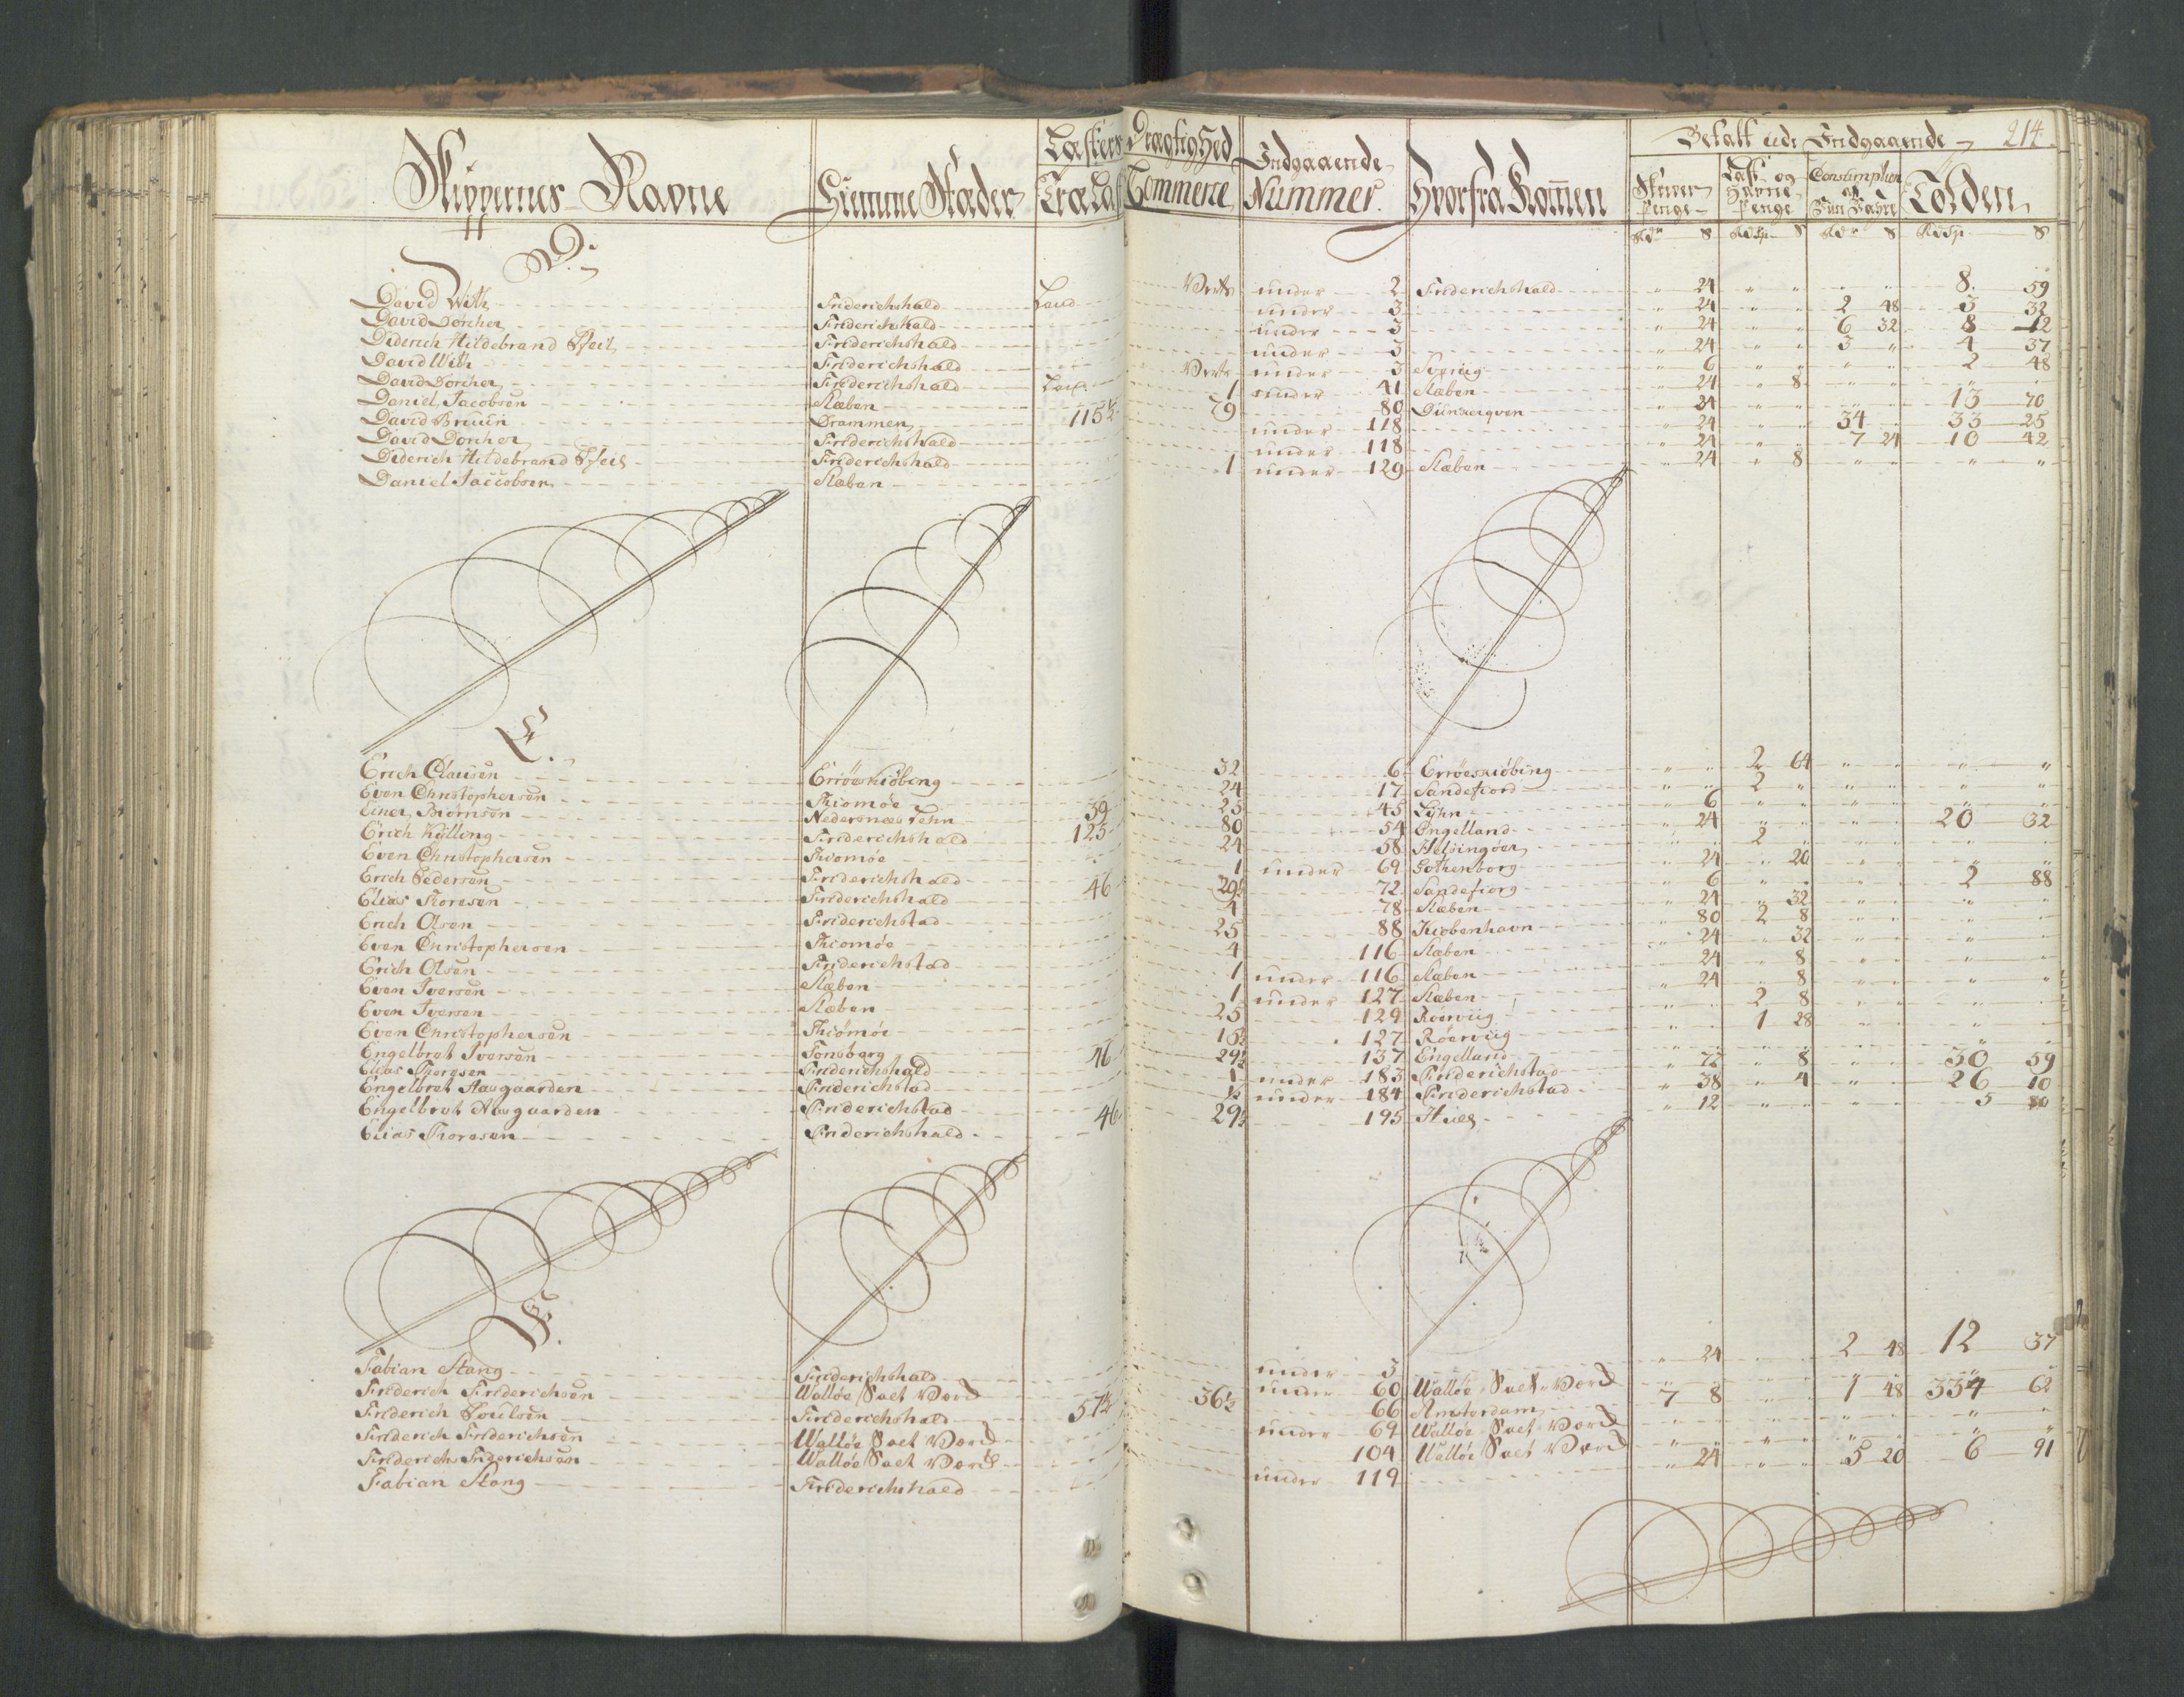 214.
Skippernes Navne Hiemme Stæder Læsters Drægtighed Indgaaende Nummer. Hvorfra Kommen Betalt udi Indgaaende
Træ Læst Commerce Skriver Penge Læst og Havne Penge Consumption og Tolden
D.
David With Friderichshald Land Verts under 2 Friderichshald " 24 " " " " 8 59
David Dorcher Friderichshald under 3 " 24 " " 2 48 3 32
Diderich Hildebrand Pfeil Friderichshald under 3 " 24 " " 6 32 8 12
David With Friderichshald under 3 " 24 " " 3 " 4 37
David Dorcher Friderichshald Land Verts under 3 " 6 " " " " 2 48
Daniel Jacobsen Slæben 1 under 41 Slæben " 24 " 8 " " " "
David Bruun Drammen 115½ 79 80 Dunkerqven " 24 " " " " 13 70
David Dorcher Friderichshald under 118 " 24 " " 34 " 33 25
Diderich Hildebrand Pfeil Friderichshald under 118 " 24 " " 7 24 10 42
Daniel Jacobsen Slæben 1 under 129 Slæben " 24 " 8 " " " "
E.
Erich Clausen Erröeskiöbing 32 6 Erröeskiöbing " " 2 64 " " " "
Even Christophersen Thiomöe 24 17 Sandefiord " " 2 " " " " "
Einer Biörnsen Nedersnæs Lehn 39 25 45 Lyhn " 6 " " " " " "
Erich Kylling Friderichshald 125 80 54 Engelland " 24 " " " " 20 32
Even Christophersen Thiomöe 24 58 Helsingöer " " 2 " " " " "
Erich Pedersen Friderichshald 1 under 69 Gothenborg " 24 " 20 " " " "
Elias Thoresen Friderichshald 46 29½ 72 Sandefiorg " 6 " " " " 2 88
Erich Olsen Friderichstad 4 78 Slæben " 24 " 32 " " " "
Even Christophersen Thiomöe 25 88 Kiöbenhavn " 80 2 8 " " " "
Erich Olsen Friderichstad 4 116 Slæben " 24 " 32 " " " "
Even Iversen Slæben 1 under 116 Slæben " 24 " 8 " " " "
Even Iversen Slæben 1 under 127 Slæben " 24 " 8 " " " "
Even Christophersen Thiömöe 25 129 Roerviig " " 2 8 " " " "
Engelbret Iversen Tonsberg 16½ 127 Röerviig " " 1 28 " " " "
Elias Thoresen Friderichshald 46 29½ 137 Engelland " " " " " " " "
Engelbret Aasgaarden Friderichstad 1 under 183 Friderichstad " 72 " 8 " " 30 59
Engelbret Aasgaarden Friderichstad ½ under 184 Friderichstad " 38 " 4 " " 26 10
Elias Thoresen Friderichshald 46 29½ 195 Hull " 12 " " " " 3 80
F.
Fabian Stang Friderichshald under 3 " 24 " " 2 48 12 37
Friderich Friderichsen Walløe Salt Værk under 60 Walløe Salt Værk " " " " " " " "
Friderich Poulsen Friderichshald 57½ 36½ 66 Amsterdam 7 8 " " 1 48 334 62
Friderich Friderichsen Walløe Salt Værk under 69 Walløe Salt Værk " " " " " " " "
Friderich Friderichsen Walløe Salt Værk 104 Walløe Salt Værk " " " " " " " "
Fabian Stang Friderichshald under 119 " 24 " " 5 20 6 91